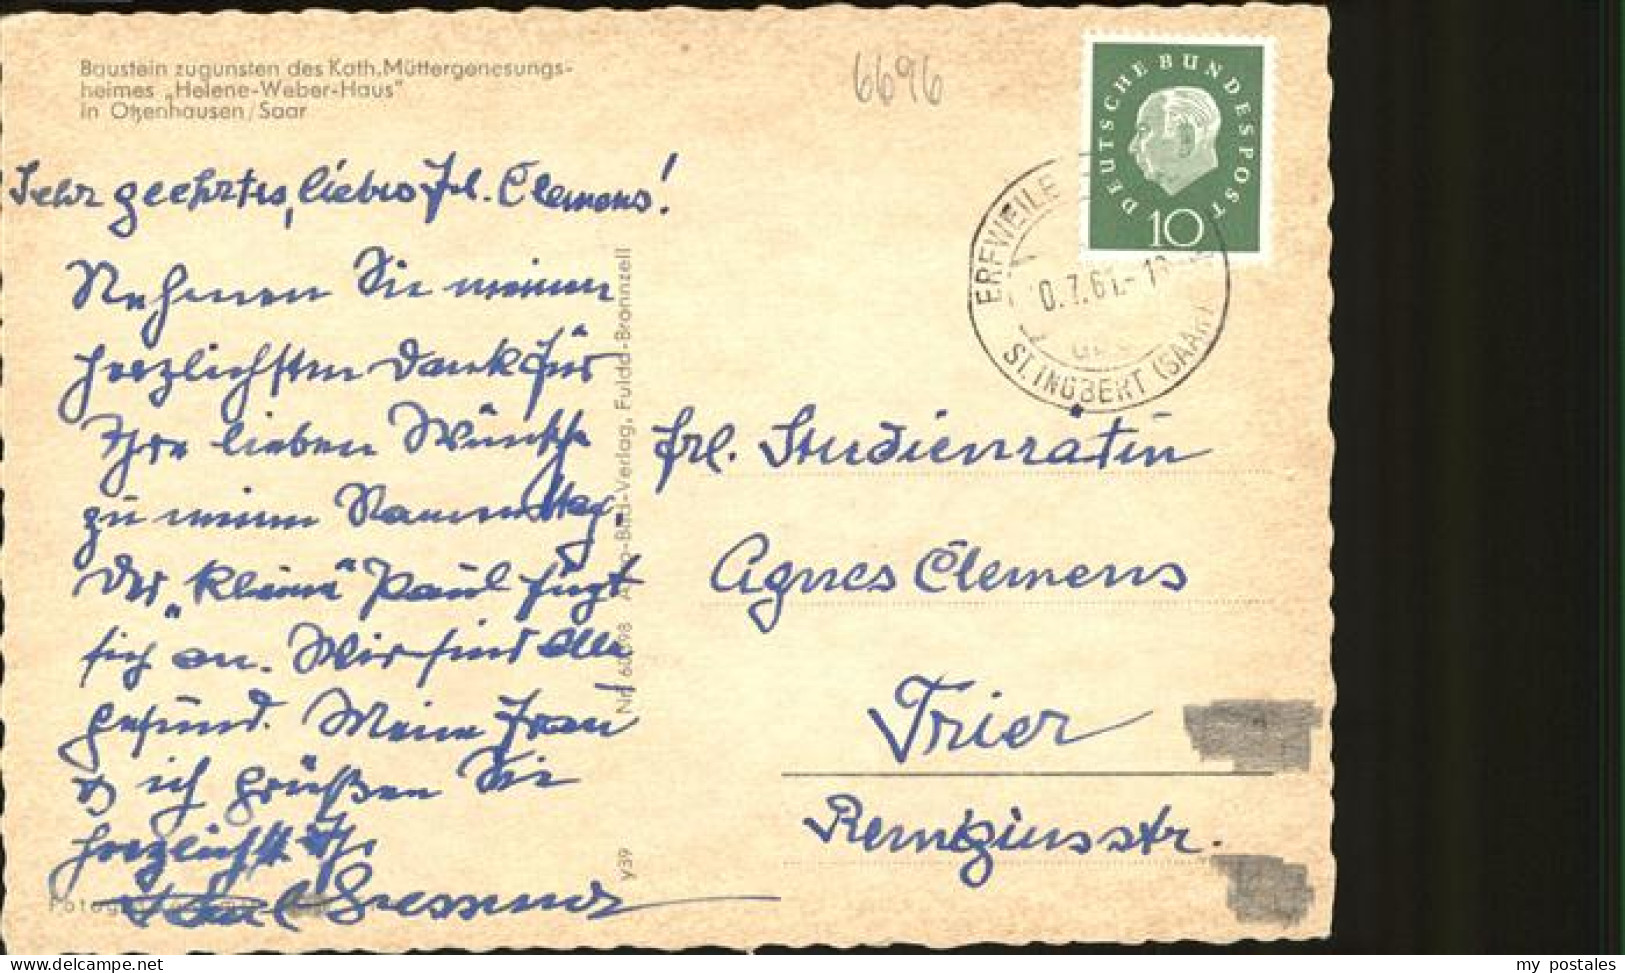 Baustein zugunsten des Kath. Müttergenesungs-
heimes „Helene-Weber-Haus"
in Otzenhausen/Saar
6696
DEUTSCHE BUNDESPOST
10
ERFWEILE
0.7.61.-18
ST. INGBERT (SAAR)
Sehr geehrtes, liebes Frl. Clemens!
Nehmen Sie meinen
herzlichsten Dank für
Ihre lieben Wünsche
zu meinem Namenstag.
Der „kleine" Paul fügt
sich an. Wir sind alle
gesund. Meine Frau
u. ich grüßen Sie
herzlichst Ihr
Nr. 60 Bild-Verlag, Fulda-Bronnzell
y39
Frl. Studienrätin
Agnes Clemens
Trier
Remigiusstr.
my postales